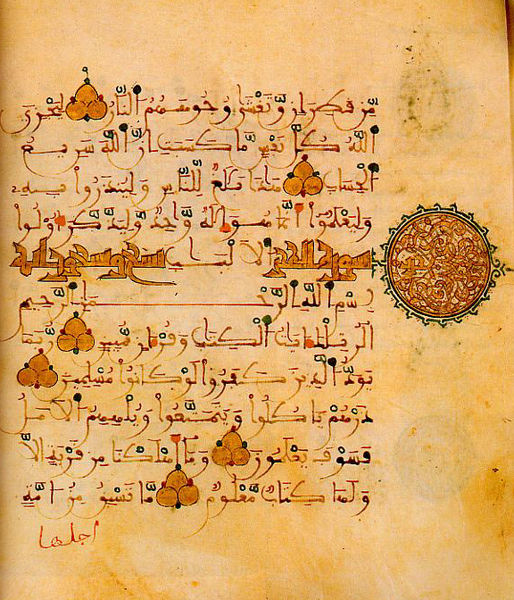 مِّن قَطِرَانٍ وَّتَغْشَىٰ وُجُوهَهُمُ النَّارُ لِيَجْزِيَ
اللَّهُ كُلَّ نَفْسٍ مَّا كَسَبَتْ إِنَّ اللَّهَ سَرِيعُ
الْحِسَابِ هَٰذَا بَلَٰغٌ لِّلنَّاسِ وَلِيُنذَرُوا بِهِ
وَلِيَعْلَمُوا أَنَّمَا هُوَ إِلَٰهٌ وَاحِدٌ وَلِيَذَّكَّرَ أُولُوا
سورة الحجر الْأَلْبَٰبِ تسع وتسعون اية
بِسْمِ اللَّهِ الرَّحْمَٰنِ الرَّحِيمِ
الر تِلْكَ ءَايَٰتُ الْكِتَٰبِ وَقُرْءَانٍ مُّبِينٍ رُّبَمَا
يَوَدُّ الَّذِينَ كَفَرُوا لَوْ كَانُوا مُسْلِمِينَ
ذَرْهُمْ يَأْكُلُوا وَيَتَمَتَّعُوا وَيُلْهِهِمُ الْأَمَلُ
فَسَوْفَ يَعْلَمُونَ وَمَا أَهْلَكْنَا مِن قَرْيَةٍ إِلَّا
وَلَهَا كِتَابٌ مَّعْلُومٌ مَّا تَسْبِقُ مِنْ أُمَّةٍ
اجلها